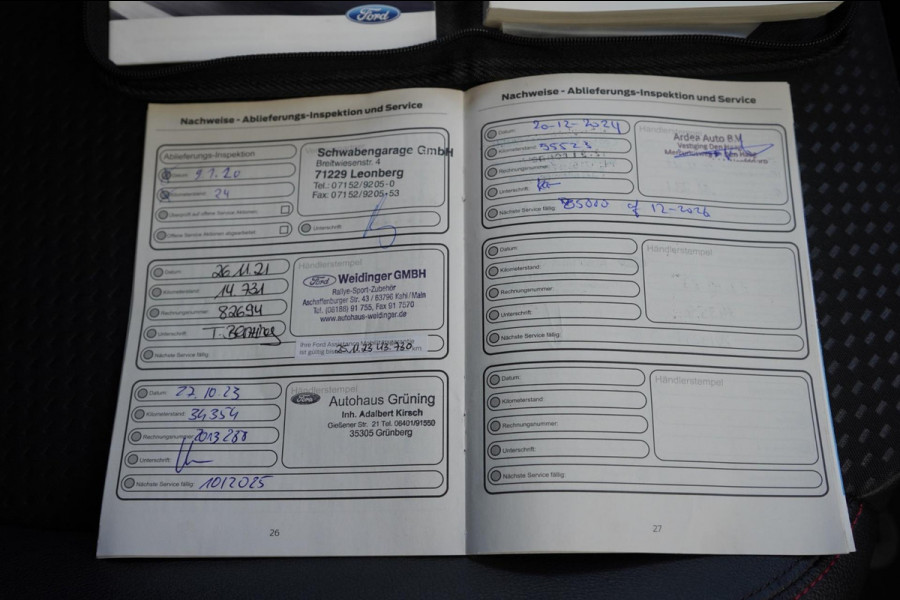 Ford
Nachweise - Ablieferungs-Inspektion und Service
Ablieferungs-Inspektion
Datum: 9.1.20
Kilometerstand: 24
Überprüft auf offene Service Aktionen:
Offene Service Aktionen abgearbeitet:
Schwabengarage GmbH
Breitwiesenstr. 4
71229 Leonberg
Tel.: 07152/9205-0
Fax: 07152/9205-53
Unterschrift:
Datum: 26.11.21
Kilometerstand: 14.731
Rechnungsnummer: 82694
Unterschrift:
Nächste Service fällig:
Händlerstempel
Ford Weidinger GMBH
Rallye-Sport-Zubehör
Aschaffenburger Str. 43 / 63796 Kahl/Main
Tel. (06188) 91 755, Fax 91 7570
www.autohaus-weidinger.de
Ihre Ford Assistance
ist gültig bis 25.11.23 km
Datum: 27.10.23
Kilometerstand: 34354
Rechnungsnummer: 2013288
Unterschrift:
Nächste Service fällig: 10/2025
Händlerstempel
Ford Autohaus Grüning
Inh. Adalbert Kirsch
Gießener Str. 21 Tel. 06401/91550
35305 Grünberg
26
Nachweise - Ablieferungs-Inspektion und Service
Datum: 20-12-2024
Kilometerstand: 55523
Rechnungsnummer:
Unterschrift:
Nächste Service fällig: 85000 of 12-2026
Ardea Auto B.V.
Vestiging Den Haag
Datum:
Kilometerstand:
Rechnungsnummer:
Unterschrift:
Nächste Service fällig:
Händlerstempel
Datum:
Kilometerstand:
Rechnungsnummer:
Unterschrift:
Nächste Service fällig:
Händlerstempel
27